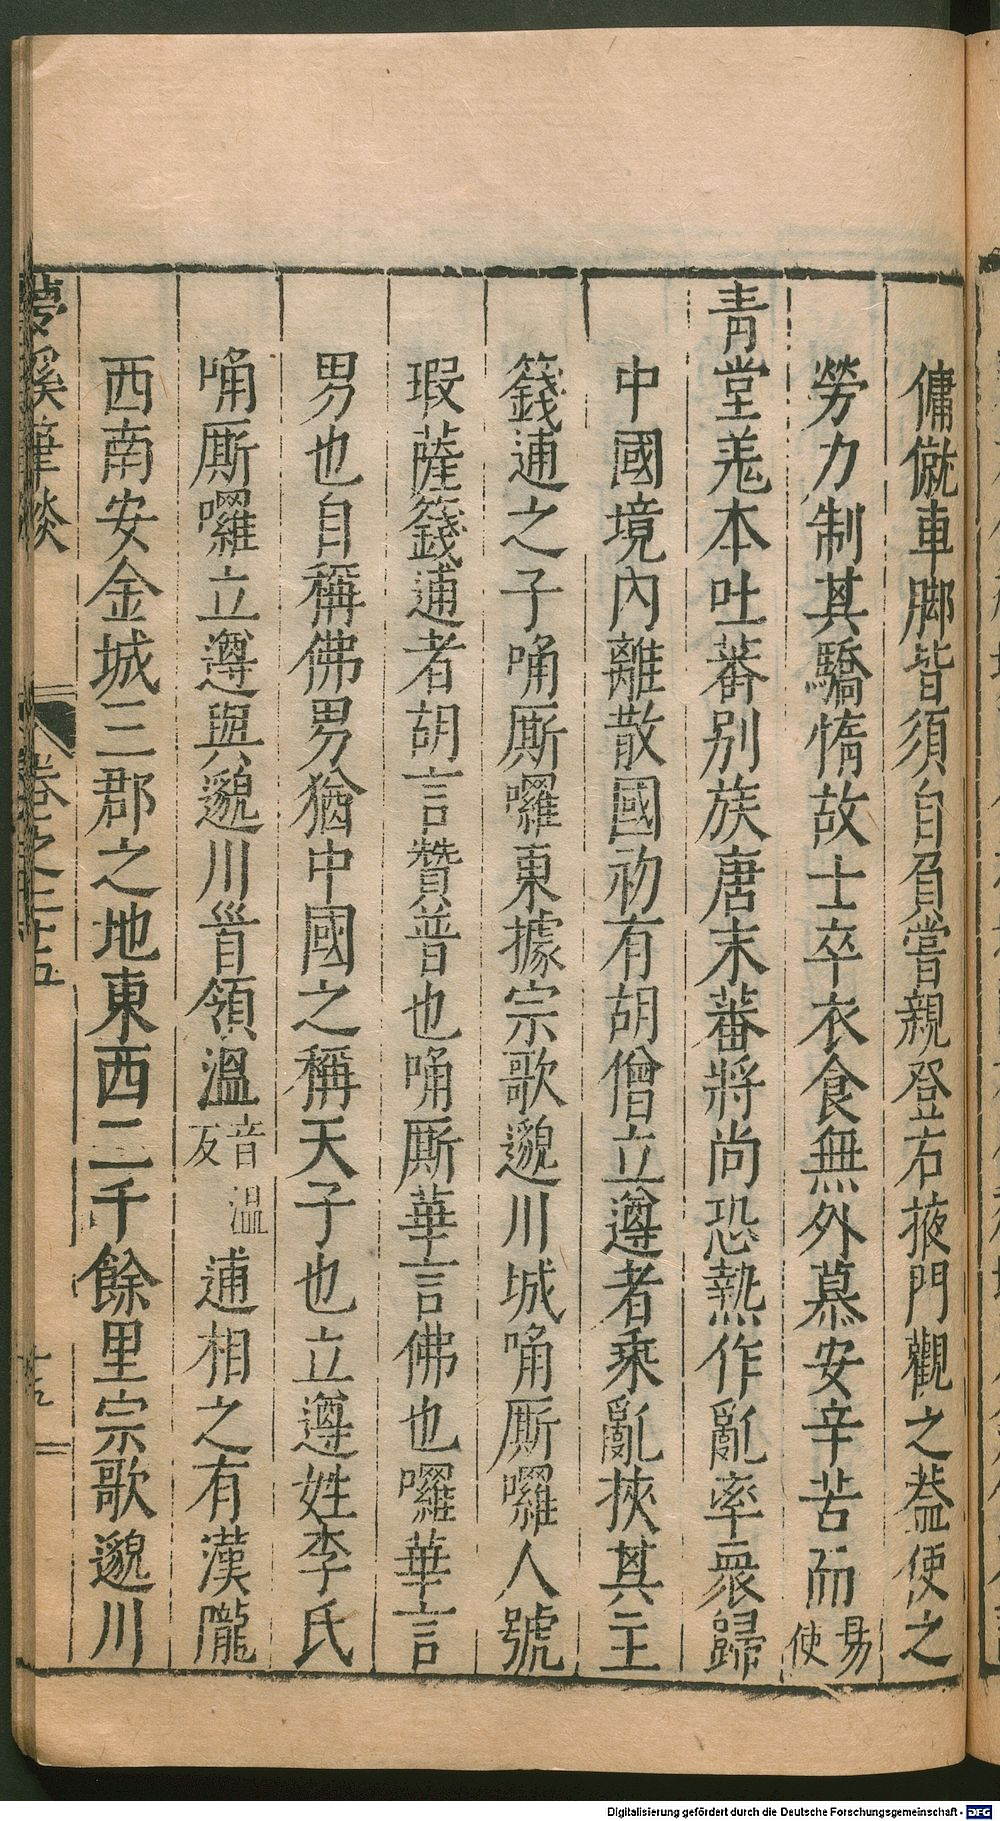 傭僦車脚皆須自負嘗親登右掖門觀之葢使之
勞力制其驕惰故士卒衣食無外慕安辛苦而易使
青堂羌本吐蕃别族唐末蕃將尚恐熱作亂率衆歸
中國境內離散國初有胡僧立遵者乘亂挾其主
籛逋之子唃厮囉東據宗歌邈川城唃厮囉人號
瑕薩籛逋者胡言贊普也唃厮華言佛也囉華言
男也自稱佛男猶中國之稱天子也立遵姓李氏
唃厮囉立遵與邈川首領溫音溫反逋相之有漢隴
西南安金城三郡之地東西二千餘里宗歌邈川
夢溪筆談 卷之二十五 十五
Digitalisierung gefördert durch die Deutsche Forschungsgemeinschaft - DFG